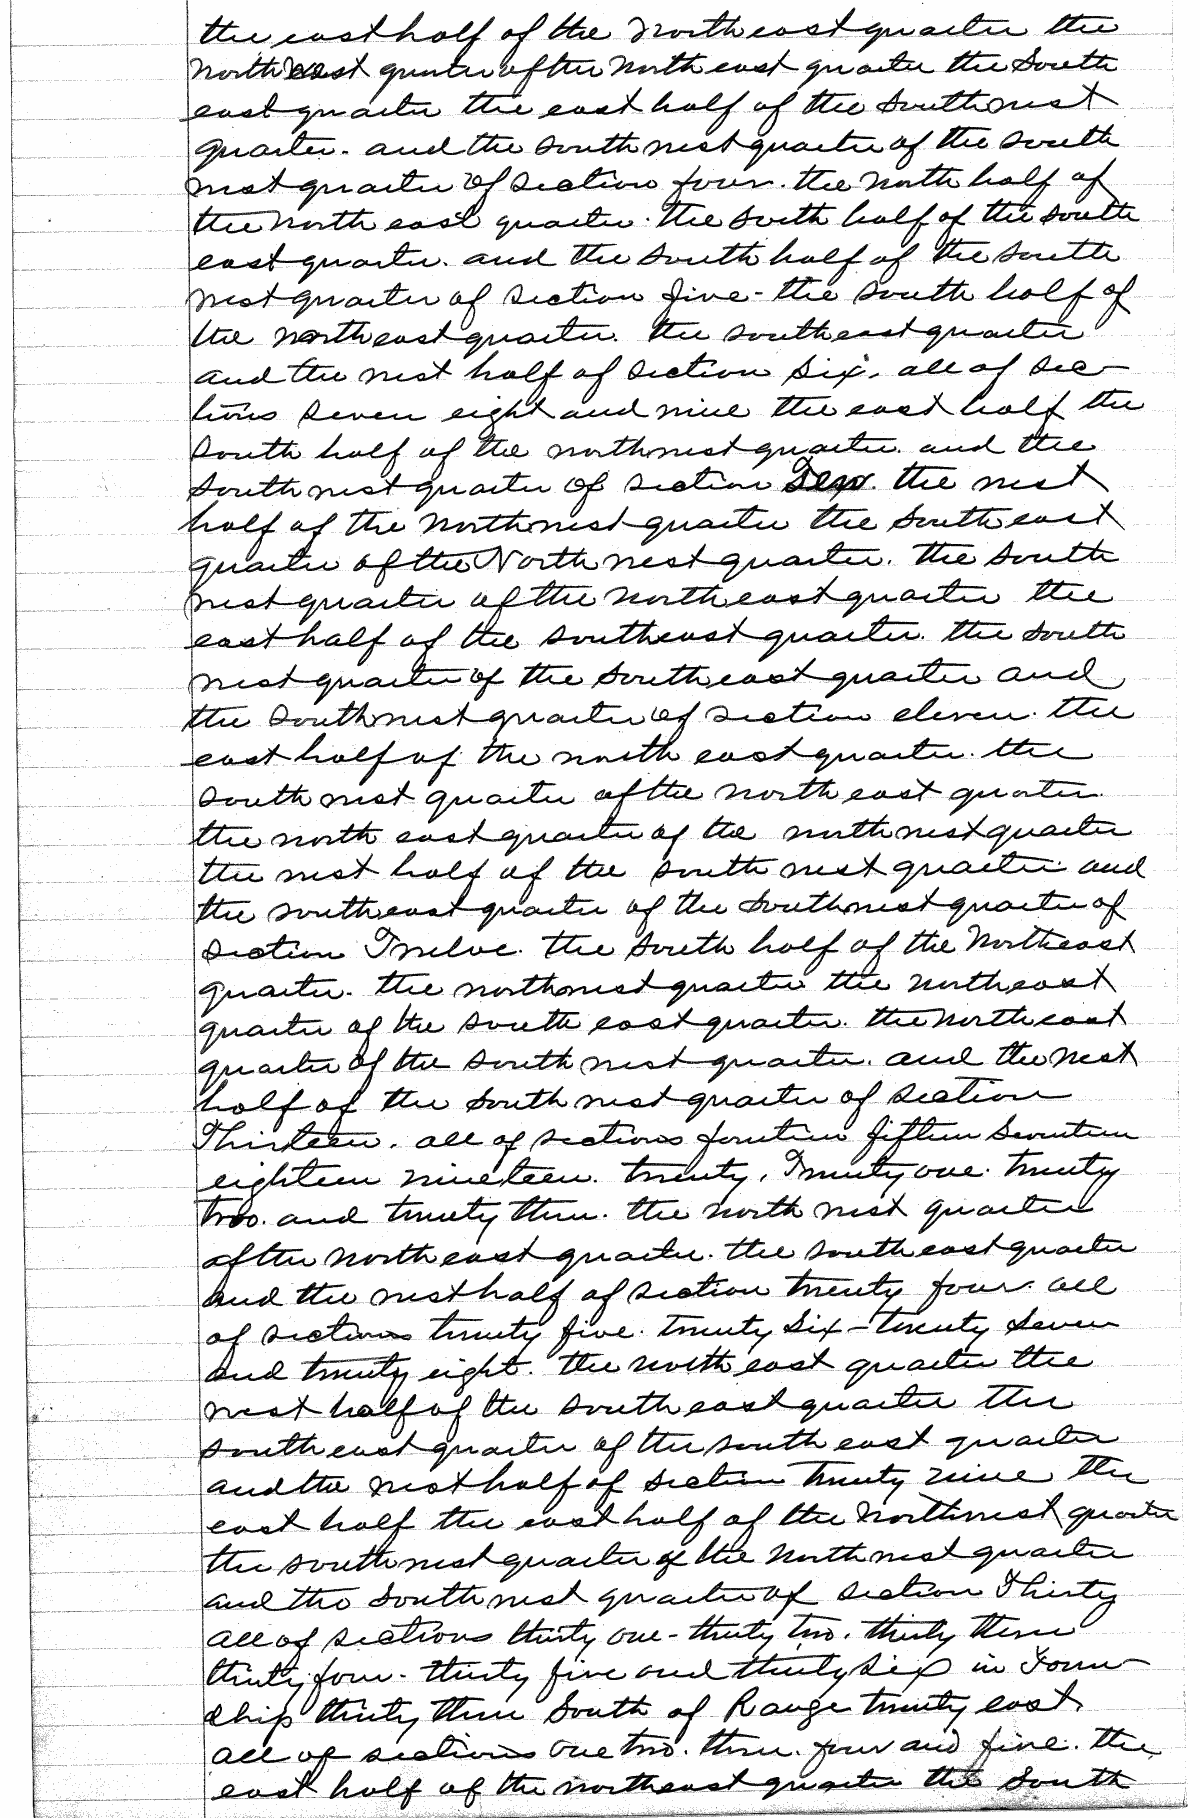 the east half of the North east quarter the
North West quarter of the North east quarter the South
east quarter the east half of the South west
quarter. and the South west quarter of the South
west quarter of Section four. the North half of
the North east quarter. the South half of the South
east quarter. and the South half of the South
west quarter of Section five - the South half of
the north east quarter. the South east quarter
and the west half of Section Six. all of Sec-
tions Seven eight and nine the east half the
South half of the northwest quarter. and the
South west quarter of Section Ten. the west
half of the Northwest quarter the South east
quarter of the North west quarter. the South
west quarter of the North east quarter the
east half of the South east quarter. the South
west quarter of the South east quarter and
the South west quarter of Section eleven. the
east half of the north east quarter. the
South west quarter of the North east quarter.
the north east quarter of the north west quarter
the west half of the South west quarter. and
the South east quarter of the South west quarter of
Section Twelve. the South half of the North east
quarter. the northwest quarter the North east
quarter of the South east quarter. the North east
quarter of the South west quarter. and the West
half of the South west quarter of Section
Thirteen. all of Sections fourteen fifteen Seventeen
eighteen nineteen. twenty. Twenty one. twenty
two. and twenty three. the north west quarter
of the North east quarter. the South east quarter
and the west half of Section twenty four. all
of Sections twenty five. twenty Six - twenty Seven
and twenty eight. the north east quarter the
west half of the South east quarter the
South east quarter of the South east quarter
and the west half of Section Twenty nine the
east half the east half of the Northwest quarter
the South west quarter of the North west quarter
and the South west quarter of Section Thirty
all of Sections thirty one - thirty two. thirty three
thirty four - thirty five and thirty Six in Town-
Ship thirty three South of Range twenty east.
all of Sections one two. three. four and five. the
east half of the northeast quarter the South